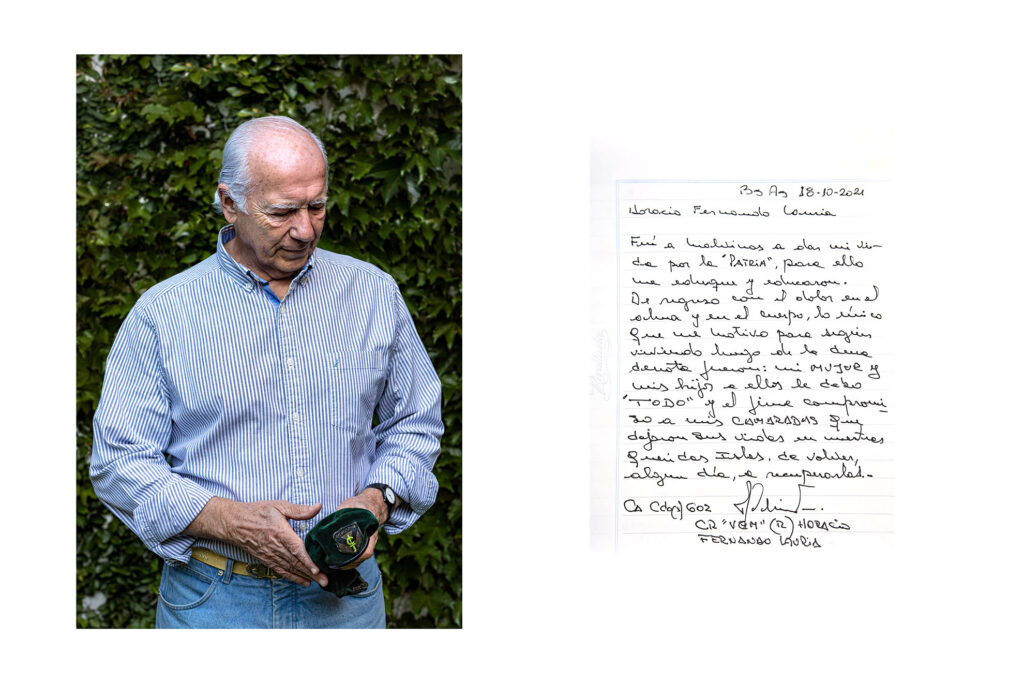 Bs As 18-10-2021
Horacio Fernando Lauria
Fuí a Malvinas a dar mi vi-
da por la "PATRIA", para ello
me eduque y educaron.
De regreso con el dolor en el
alma y en el cuerpo, lo único
que me motivo para seguir
viviendo luego de la dura
derrota fueron: mi MUJER y
mis hijos a ellos le debo
"TODO" y el firme compromi-
so a mis CAMARADAS que
dejaron sus vidas en nuestras
queridas Islas. de volver,
algun día, a recuperarlas.-
Ca Cdos/602
CR "VGM" (R) HORACIO
FERNANDO LAURIA